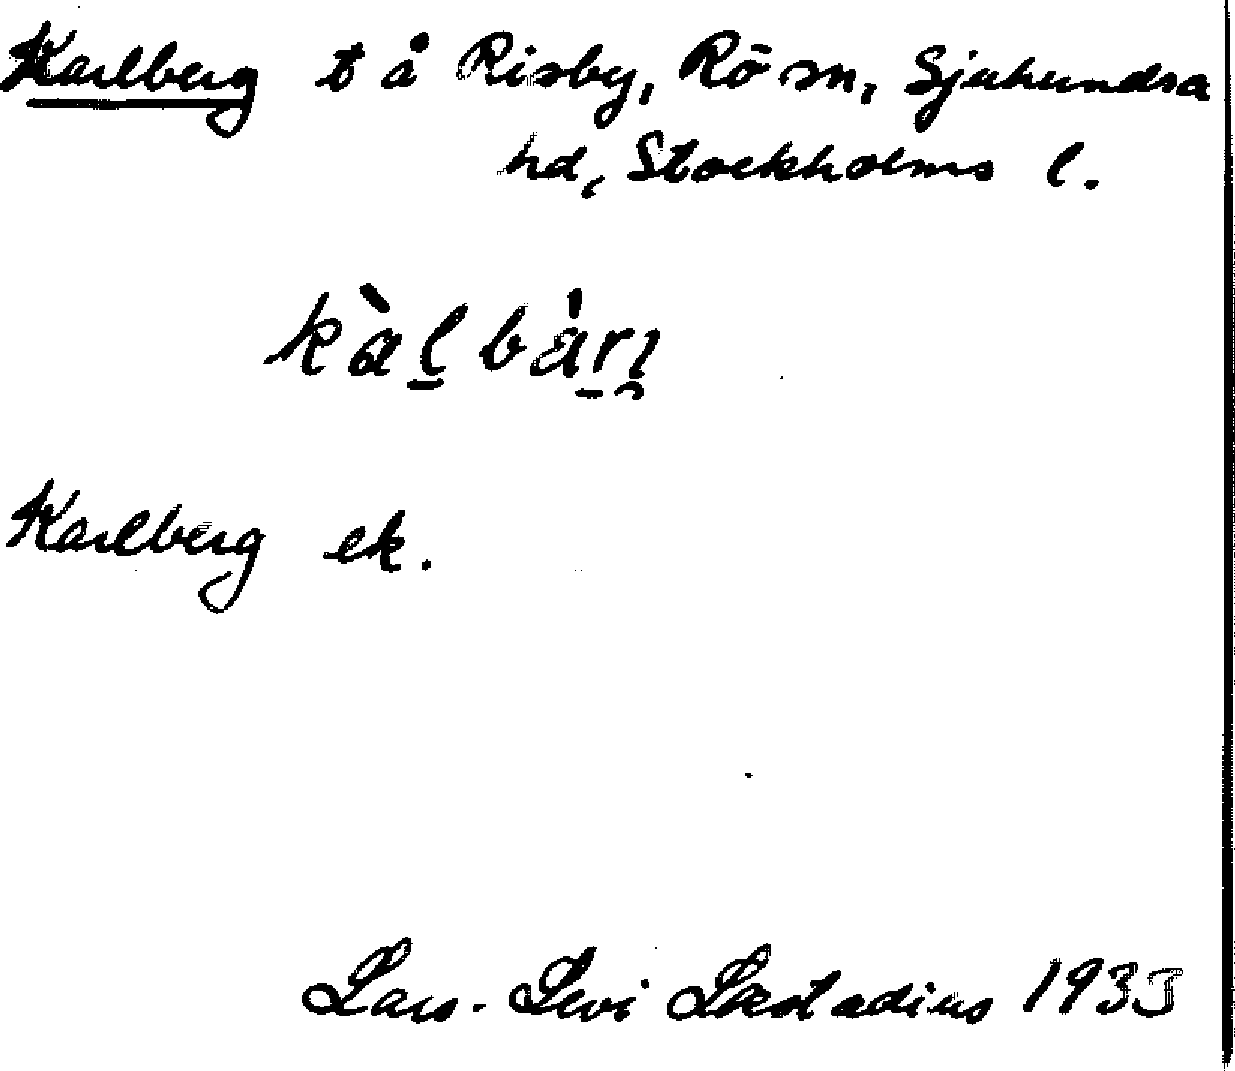 Karlberg t å Risby, Rö sn, Sjuhundra
hd, Stockholms l.
kàḻbàṟı̯
Karlberg ek.
Lars-Levi Læstadius 1933